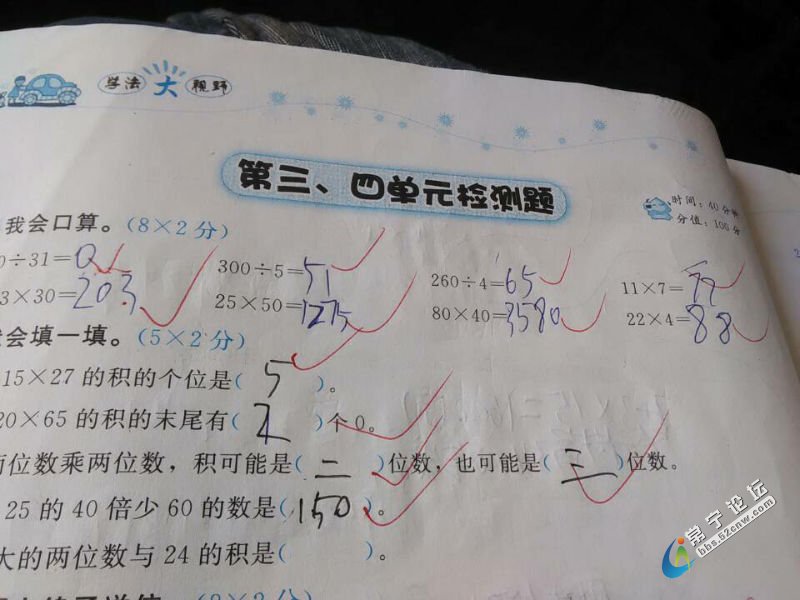 学法大视野
第三、四单元检测题
时间：40分钟
分值：100分
我会口算。(8×2分)
0÷31=0 300÷5=51 260÷4=65 11×7=77
3×30=203 25×50=1275 80×40=3580 22×4=88
会填一填。(5×2分)
15×27的积的个位是( 5 )。
20×65的积的末尾有( 2 )个0。
位数乘两位数，积可能是( 二 )位数，也可能是( 三 )位数。
25的40倍少60的数是( 150 )。
大的两位数与24的积是( )。
常宁论坛
bbs.52cnw.com